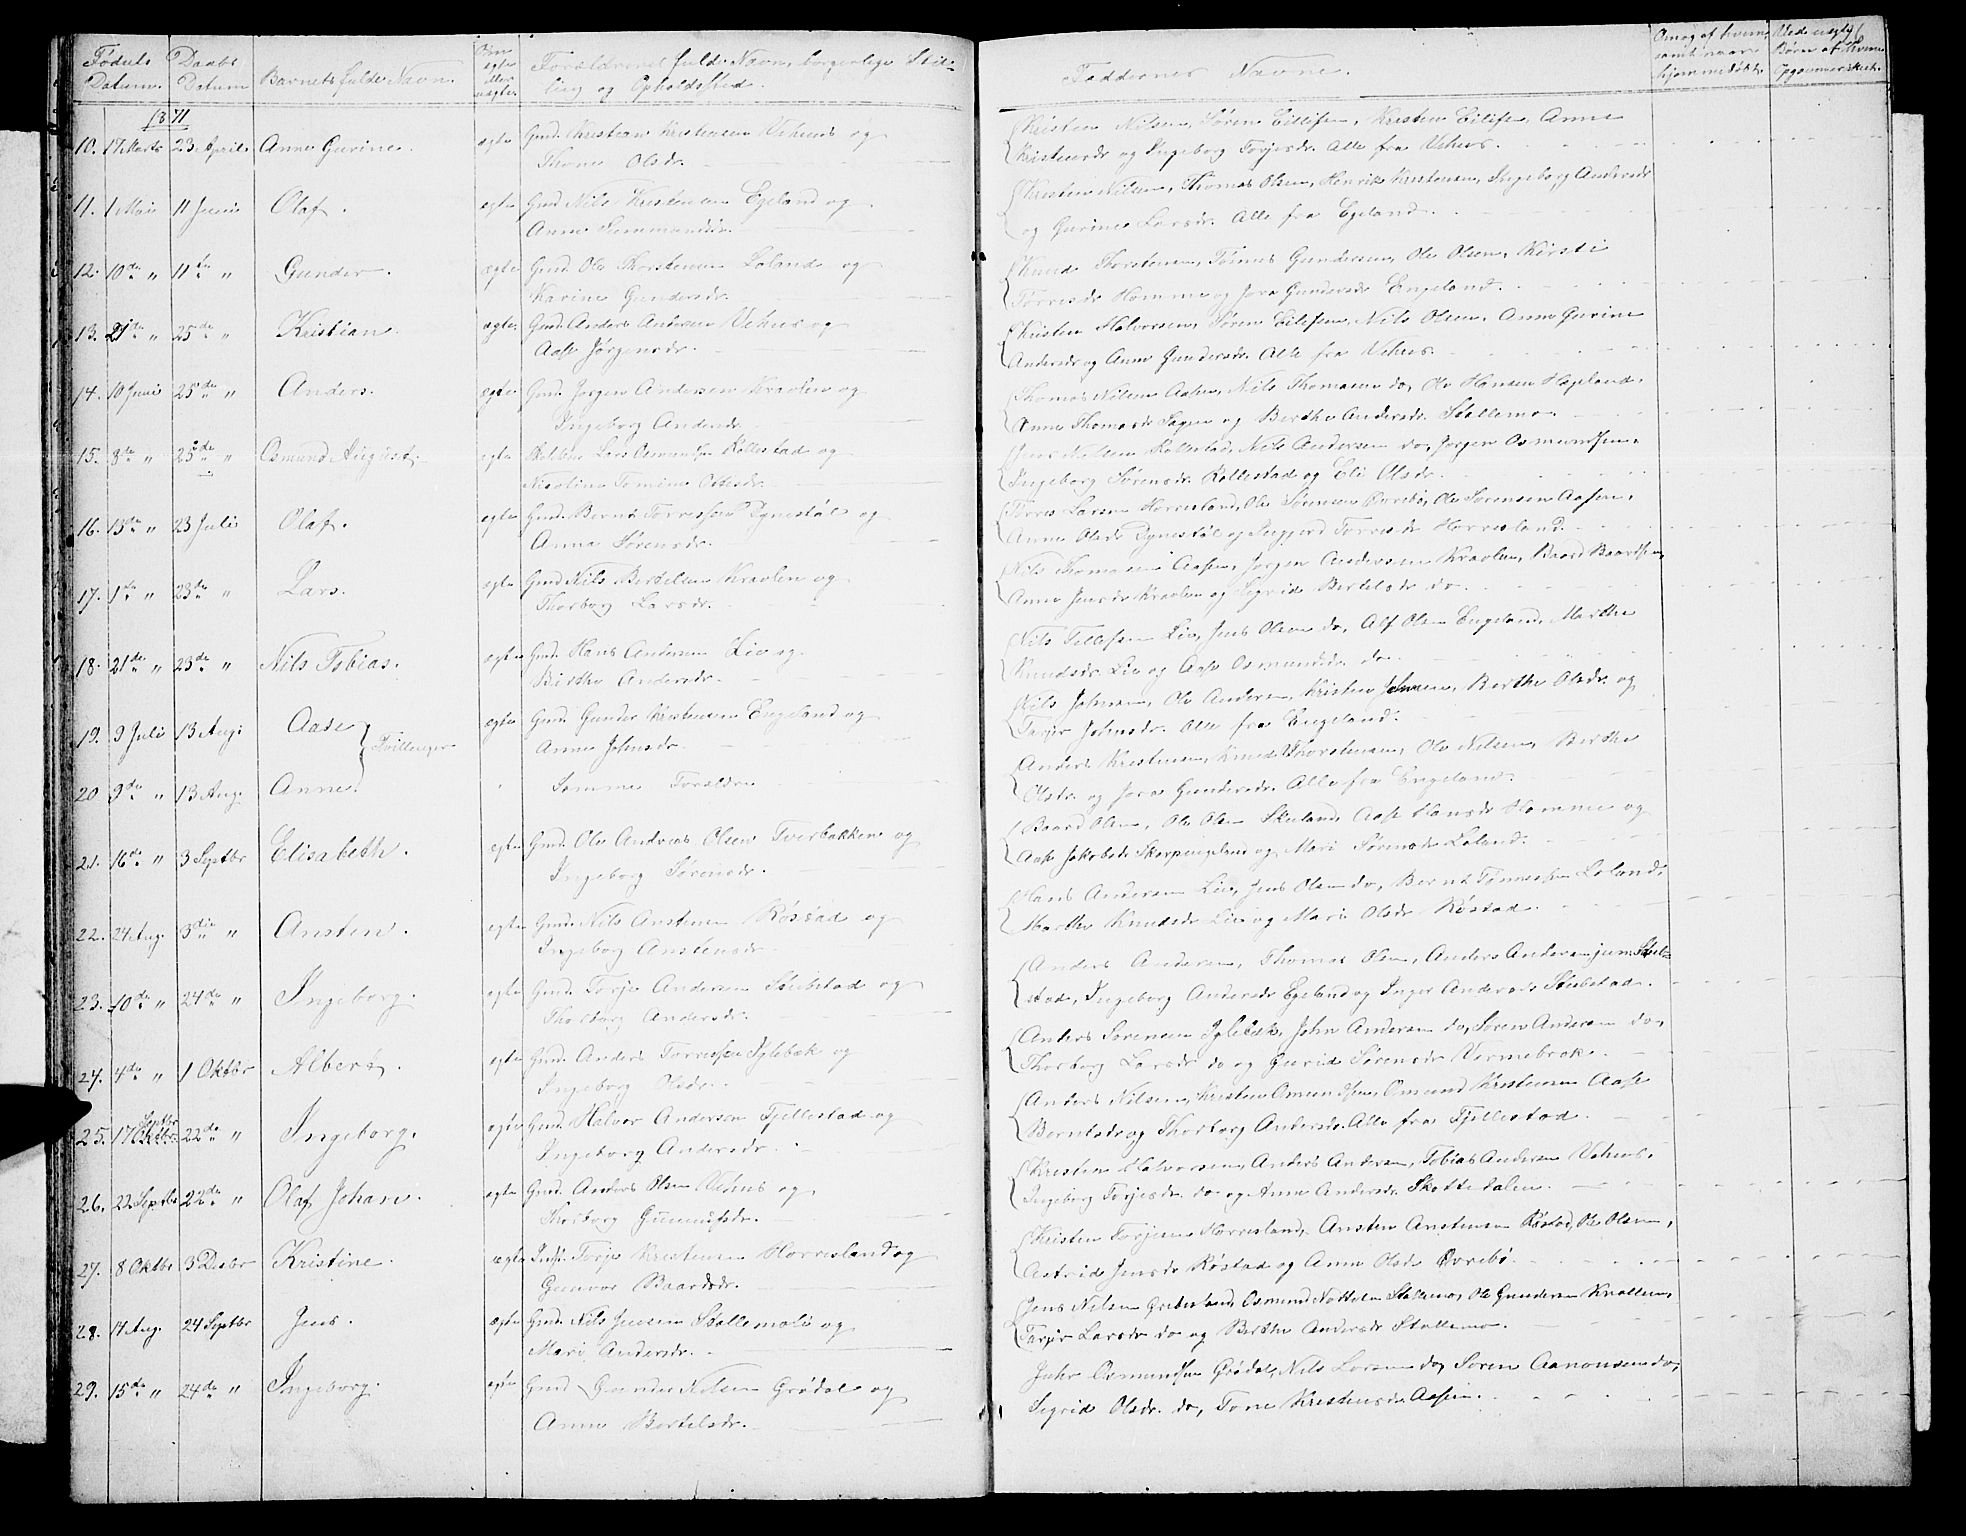 Fødsels Datum. Daabs Datum Barnets fulde Navn. Om egte eller uegte. Forældrenes fulde Navn, borgerlige Stilling og Opholdsted. Faddernes Navne.
1871
10. 17 Marts 23 April Anne Gurine. egte Gmd. Kristian Kristensen Vehus og
Thone Olsdr.
Kristen Nilsen, Søren Eilifsen, Kristen Eilifsen, Anne
Kristensdr og Ingeborg Torjesdr. Alle fra Vehus.
11. 1 Mai 11 Juni Olaf. egte Gmd Nils Kristensen Egeland og
Anne
Kristen Nilsen, Thomas Olsen, Henrik Kristensen, Ingeborg Andersdr
og Gurine Larsdr. Alle fra Egeland.
12. 10de " 11te " Gunder. egte Gmd. Ole Thorstensen Loland og
Karine Gundersdr.
Knud Thorstensen, Tønnes Gundersen, Ole Olsen, Kirsti
Torresdr Homme og Jora Gundersdr Engeland.
13. 21de " 25de " Kristian. egte Gmd. Anders Andersen Vehus og
Aase Jørgensdr.
Kristen Halvorsen, Søren Eilifsen, Nils Olsen, Anne Gurine
Andersdr og Anne Gundersdr. Alle fra Vehus.
14. 10 Juni 25de " Anders. egte Gmd. Jørgen Andersen Kraolen og
Ingeborg Andersdr.
Thomas Nilsen Aasen, Nils Thomasen do, Ole Hansen Hægeland,
Anne Thomasdr Sagen og Berthe Andersdr. Stallemo.
15. 8de " 25de " Osmund August. egte Lars Osmundsen Rollestad og
Nicoline Tomine Ottesdr.
Jens Nilsen Rollestad, Nils Andersen do, Jørgen Osmundsen,
Ingeborg Sørensdr. Rollestad og Eli Olsdr.
16. 13de " 23 Juli Olaf. egte Gmd. Bernt Torresen Dynestøl og
Anna Sørensdr.
Torres Larsen Horrisland, Ole Sørensen Øvrebø, Ole Sørensen Aasen,
Anne Olsdr Dynestøl og Torresdr Horrisland.
17. 1de " 23de " Lars. egte Gmd Nils Bertelsen Kraolen og
Thorborg Larsdr.
Nils Thomasen Aasen, Jørgen Andersen Kraolen, Baard Baardsen,
Anne Jensdr Kraolen og Sigrid Bertelsdr do.
18. 21de " 23de " Nils Tobias. egte Gmd. Hans Andersen Lie og
Birthe Andersdr.
Nils Tellefsen Lie, Jens Olsen do, Alf Olsen Engeland, Marthe
Knudsdr. Lie og Aase Osmundsdr. do.
19. 9 Juli 13 Aug. Aase Tvillinger egte Gmd. Gunder Kristensen Engeland og
Anne Johnsdr.
Nils Johnsen, Ole Andersen, Kristen Johnsen, Berthe Olsdr. og
Tarjer Johnsdr. Alle fra Engeland.
20 9de " 13 Aug. Anne. Samme Forældre
Anders Kristensen, Knud Thorstensen, Ole Nilsen, Berthe
Olsdr. og Jora Gundersdr. Alle fra Engeland.
21. 16de " 3 Septbr Elisabeth. egte Gmd. Ole Andreas Olsen Tverbakken og
Ingeborg Sørensdr.
Baard Olsen, Ole Olsen Skuland, Aase Hansdr Homme og
Aase Jakobsdr Skarpengeland og Mari Sørensdr Loland.
22. 24 Aug. 3die " Ansten. egte Gmd. Nils Anstensen Røstad og
Ingeborg Anstensdr.
Hans Andersen Lie, Jens Olsen do, Bernt Tønnessen Loland,
Marthe Knudsdr. Lie og Mari Olsdr Røstad.
23. 10de " 24de " Ingeborg. egte Gmd. Torje Andersen Stubstad og
Thorborg Andersdr.
Anders Andersen, Thomas Olsen, Anders Andersen jun. Stub-
stad, Ingeborg Andersdr Egeland og Inger Andersdr Stubstad.
24. 4de " 1 Oktbr Albert. egte Gmd. Anders Torresen Iglebæk og
Ingeborg Olsdr.
Anders Sørensen Iglebæk, John Andersen do, Søren Andersen do,
Thorborg Larsdr do og Gurid Sørensdr Vermebrok.
25. 17 Septbr Oktbr. 22de " Ingeborg. egte Gmd. Halvor Andersen Fjellestad og
Ingeborg Andersdr.
Anders Nilsen, Kristen Omundsen, Osmund Kristensen Aase
Berntsdr og Thorborg Andersdr. Alle fra Fjellestad.
26. 22 Septbr 22de " Olaf Johan. egte Gmd. Anders Olsen Vehus og
Thorborg Gunnufsdr.
Kristen Halvorsen, Anders Andersen, Tobias Andersen Vehus,
Ingeborg Torjesdr. do og Anne Andersdr. Skottedalen.
27. 8 Oktbr 3 Desbr Kristine. egte Torje Kristensen Horrisland og
Gunvor Baardsdr.
Kristen Torjesen Horrisland, Ansten Anstensen Røstad, Ole Olsen,
Astrid Jensdr Røstad og Anne Olsdr Øvrebø.
28. 14 Aug. 24 Septbr Jens. egte Gmd. Nils Jensen Stallemo og
Mari Andersdr.
Jens Nilsen Osmund Stallemo, Ole Gundersen Knollen,
Tarjer Larsdr do og Berthe Andersdr Stallemo.
29. 15de " 24de " Ingeborg. egte Gmd Gunder Nilsen Grødal og
Anne Bertelsdr.
Osmundsen Grødal, Nils Larsen do, Søren Aanonsen do,
Sigrid Olsdr. do, Tone Kristensdr Aasen.